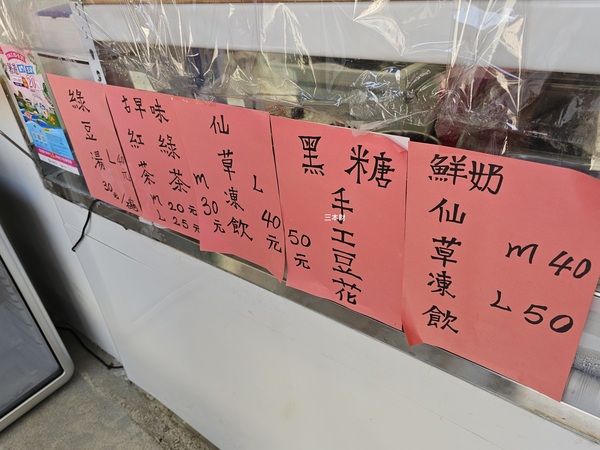 綠豆湯
L40元
30元
古早味
紅茶
綠茶
M 20元
L 25元
仙草凍飲
M 30元
L 40元
黑糖
手工豆花
50元
三本財
鮮奶
仙草凍飲
M 40
L 50